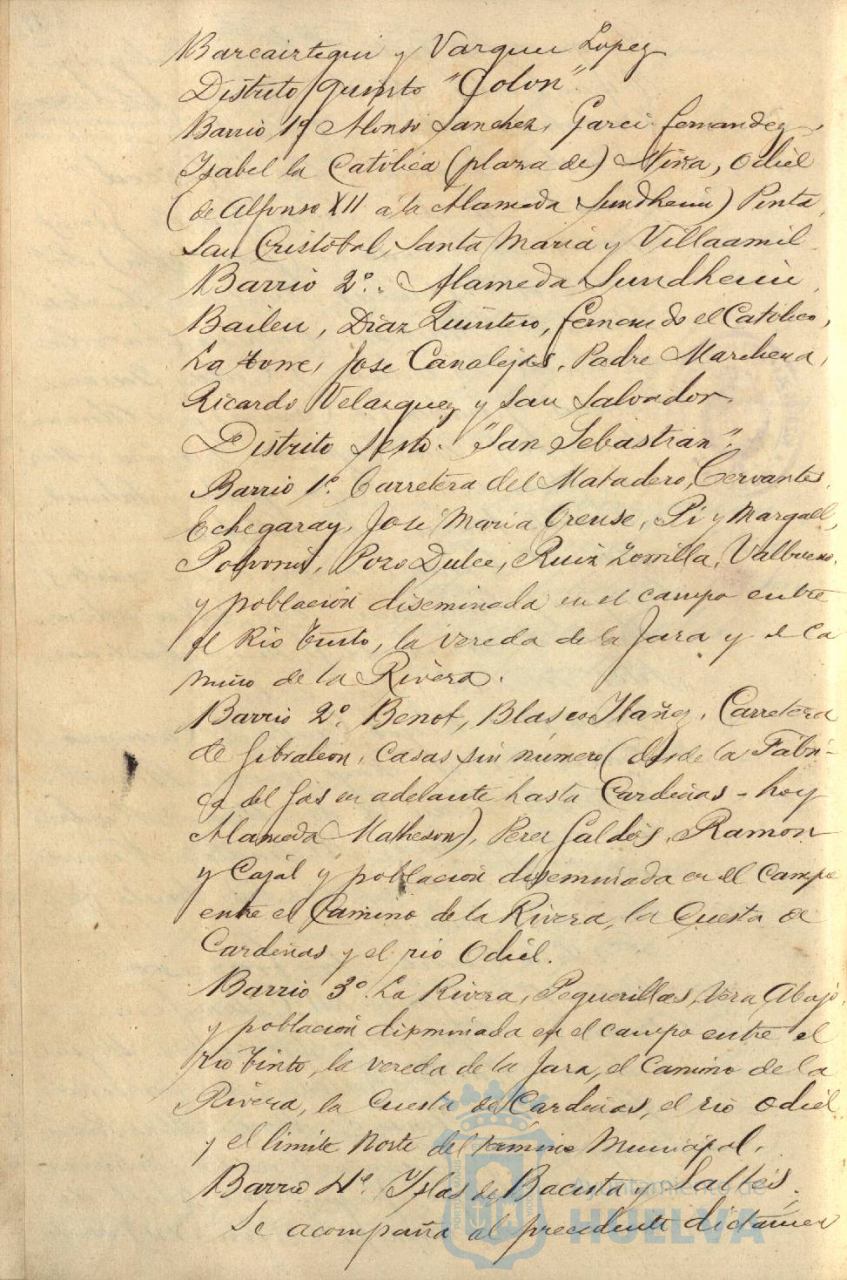 Barcaiztegui y Vazquez Lopez
Distrito quinto "Colon".
Barrio 1º Alonso Sanchez, Garci-Fernandez,
Ysabel la Católica (plaza de) Niña, Odiel
(de Alfonso XII á la Alameda Sundheim) Pinta,
San Cristobal, Santa Maria y Villaamil
Barrio 2º. Alameda Sundheim,
Bailen, Diaz Quintero, Fernando el Católico,
La Torre, Jose Canalejas, Padre Marchena,
Ricardo Velazquez y San Salvador
Distrito Sesto. "San Sebastian".
Barrio 1º. Carretera del Matadero, Cervantes,
Echegaray, José Maria Orense, Pi y Margall,
Polvorin, Pozo Dulce, Ruiz Zorrilla, Valbuena,
y población diseminada en el campo entre
el Rio Tinto, la vereda de la Jara y el Ca
mino de la Rivera.
Barrio 2º. Benot, Blasco Ibañez, Carretera
de Gibraleon, casas sin número (desde la Fábri-
ca del Gas en adelante hasta Cardeñas - hoy
Alameda Matheson), Perez Galdós, Ramon
y Cajál y población diseminada en el campo
entre el Camino de la Rivera, la Cuesta de
Cardeñas y el rio Odiel.
Barrio 3º. La Rivera, Peguerillas, Vera Abajo,
y población diseminada en el campo entre el
rio Tinto, la vereda de la Jara, el Camino de la
Rivera, la Cuesta de Cardeñas, el rio Odiel
y el límite Norte del término Municipal.
Barrio 4º. Yslas de Bacuta y Saltés.
Se acompaña al precedente dictámen
Ayuntamiento de
HUELVA